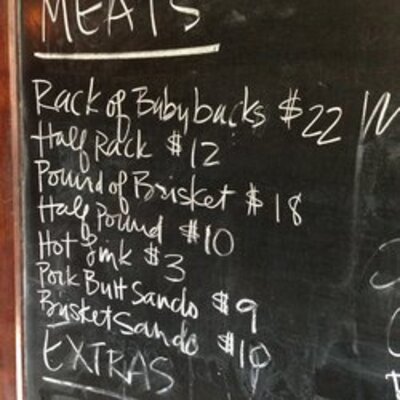 MEATS
Rack of Babybacks $22
Half Rack $12
Pound of Brisket $18
Half Pound $10
Hot Link $3
Pork Butt Sando $9
Brisket Sando $10
EXTRAS